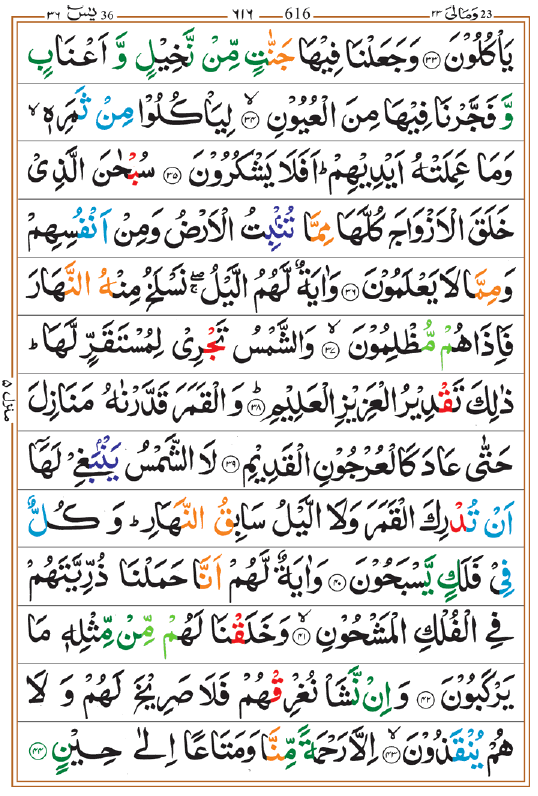 يٰسٓ 36 ٣٦ — ٦١٦ — 616 — وَمَالِیَ 23 ٢٣
يَاْكُلُوْنَ ﴿٣٣﴾ وَجَعَلْنَا فِيْهَا جَنّٰتٍ مِّنْ نَّخِيْلٍ وَّ اَعْنَابٍ
وَّ فَجَّرْنَا فِيْهَا مِنَ الْعُيُوْنِ ۙ﴿٣٤﴾ لِيَاْكُلُوْا مِنْ ثَمَرِهٖ ۙ
وَمَا عَمِلَتْهُ اَيْدِيْهِمْ ؕ اَفَلَا يَشْكُرُوْنَ ﴿٣٥﴾ سُبْحٰنَ الَّذِیْ
خَلَقَ الْاَزْوَاجَ كُلَّهَا مِمَّا تُنْۢبِتُ الْاَرْضُ وَمِنْ اَنْفُسِهِمْ
وَمِمَّا لَا يَعْلَمُوْنَ ﴿٣٦﴾ وَاٰيَةٌ لَّهُمُ الَّيْلُ ۖۚ نَسْلَخُ مِنْهُ النَّهَارَ
فَاِذَا هُمْ مُّظْلِمُوْنَ ۙ﴿٣٧﴾ وَالشَّمْسُ تَجْرِیْ لِمُسْتَقَرٍّ لَّهَا ؕ
ذٰلِكَ تَقْدِيْرُ الْعَزِيْزِ الْعَلِيْمِ ؕ﴿٣٨﴾ وَ الْقَمَرَ قَدَّرْنٰهُ مَنَازِلَ
حَتّٰى عَادَ كَالْعُرْجُوْنِ الْقَدِيْمِ ﴿٣٩﴾ لَا الشَّمْسُ يَنْۢبَغِیْ لَهَاۤ
اَنْ تُدْرِكَ الْقَمَرَ وَلَا الَّيْلُ سَابِقُ النَّهَارِ ؕ وَ كُلٌّ
فِیْ فَلَكٍ يَّسْبَحُوْنَ ﴿٤٠﴾ وَاٰيَةٌ لَّهُمْ اَنَّا حَمَلْنَا ذُرِّيَّتَهُمْ
فِی الْفُلْكِ الْمَشْحُوْنِ ۙ﴿٤١﴾ وَخَلَقْنَا لَهُمْ مِّنْ مِّثْلِهٖ مَا
يَرْكَبُوْنَ ﴿٤٢﴾ وَاِنْ نَّشَاْ نُغْرِقْهُمْ فَلَا صَرِيْخَ لَهُمْ وَ لَا
هُمْ يُنْقَذُوْنَ ۙ﴿٤٣﴾ اِلَّا رَحْمَةً مِّنَّا وَمَتَاعًا اِلٰى حِيْنٍ ﴿٤٤﴾
منزل ٥